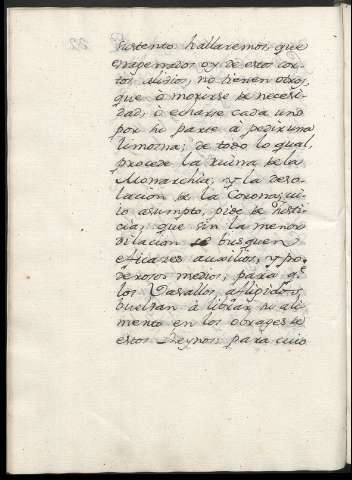 sustento hallaremos, que
enagenados oy de estos cor-
tos alidios, no tienen otros,
que à morirse de necesi-
dad, ò echarse cada uno
por su parte à pedir una
limosna; de todo lo qual,
procede la ruina de la
Monarchia, y la deso-
lacion de la Corona, cu-
io asumpto, pide de justi-
cia, que sin la menor
dilacion se busquen
eficazes auxilios, y po-
derosos medios, para q.
los Vasallos afligidos,
buelban à librar su ali-
mento en los obrages de
estos Reynos, para cuio